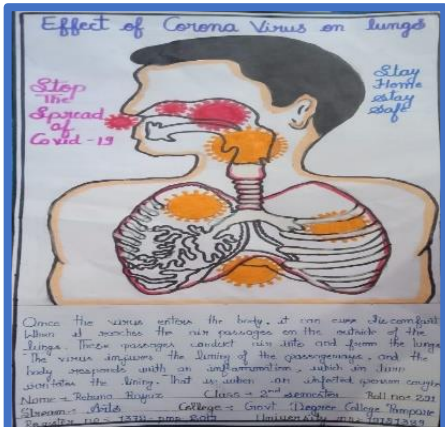 Effect of Corona Virus on lungs
Stop
The
Spread
of
Covid-19
Stay
Home
Stay
Safe
Once the virus enters the body, it can
When it reaches the air passages on the outside of the
lungs. These passages conduct air into and from the lungs
The virus the lining of the passageways, and the
body responds with an inflammation, which in turn
the lining. That is when an infected person
Class → 2nd semester Roll no: 291
Stream → Arts College → Govt Degree College Pampore